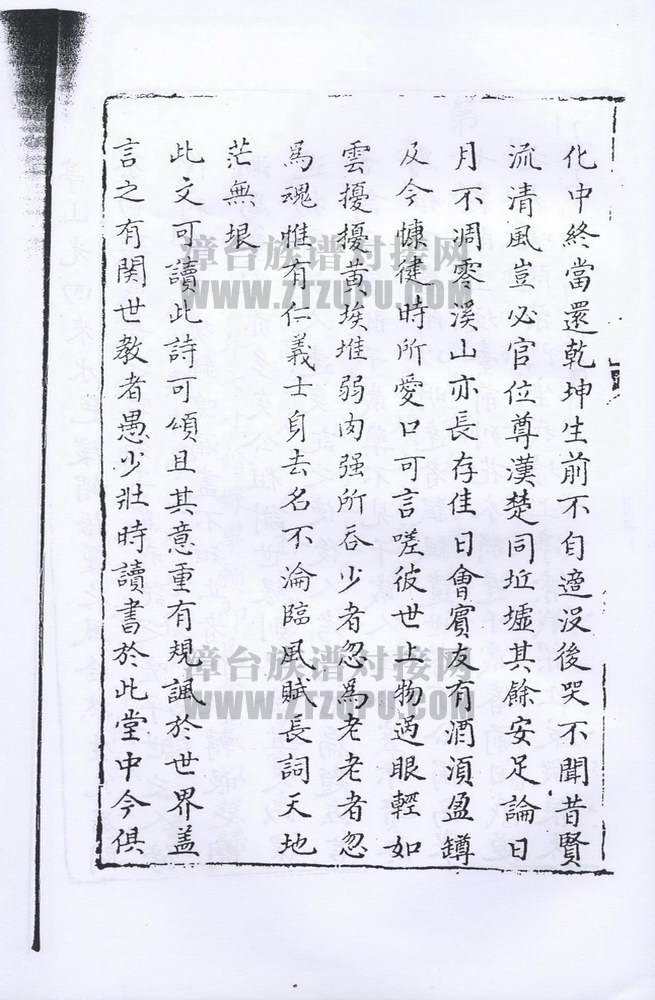 化中終當還乾坤生前不自適没後哭不聞昔賢
流清風豈必官位尊漢楚同坵墟其餘安足論日
月不凋零溪山亦長存佳日會賓友有酒須盈罇
及今慷徤時所愛口可言嗟彼世上物過眼輕如
雲擾擾黄埃堆弱肉强所吞少者忽爲老老者忽
爲魂惟有仁義士身去名不淪臨風賦長詞天地
茫無垠
此文可讀此詩可頌且其意重有規諷於世界盖
言之有関世教者愚少壯時讀書於此堂中今俱
漳台族谱对接网
www.ZTZUPU.COM
漳台族谱对接网
www.ZTZUPU.COM